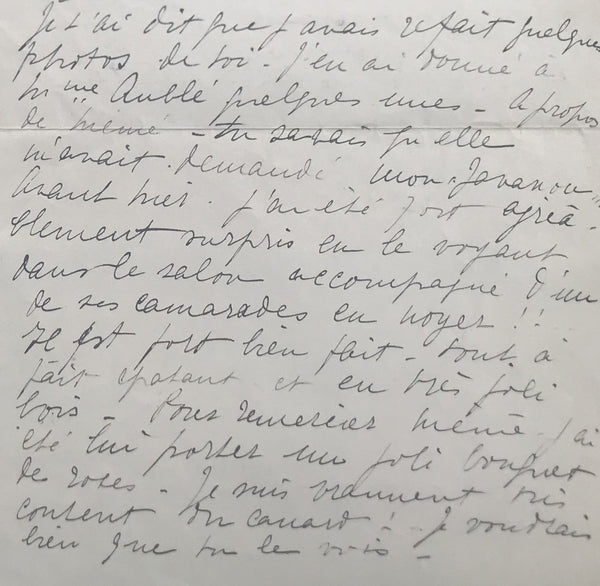 Je t'ai dit que j'avais refait quelques
photos de toi - J'en ai donné à
Mme Aublé quelques unes - A propos
de "mémé" - tu savais qu'elle
m'avait demandé mon
Avant hier j'ai été fort agréa-
blement surpris en le voyant
dans le salon accompagné d'un
de ses camarades en noyer !!
Il est fort bien fait - tout à
fait épatant et en très joli
bois - Pour remercier mémé j'ai
été lui porter un joli bouquet
de roses - Je suis vraiment très
content du canard ! - Je voudrais
bien que tu le vois -